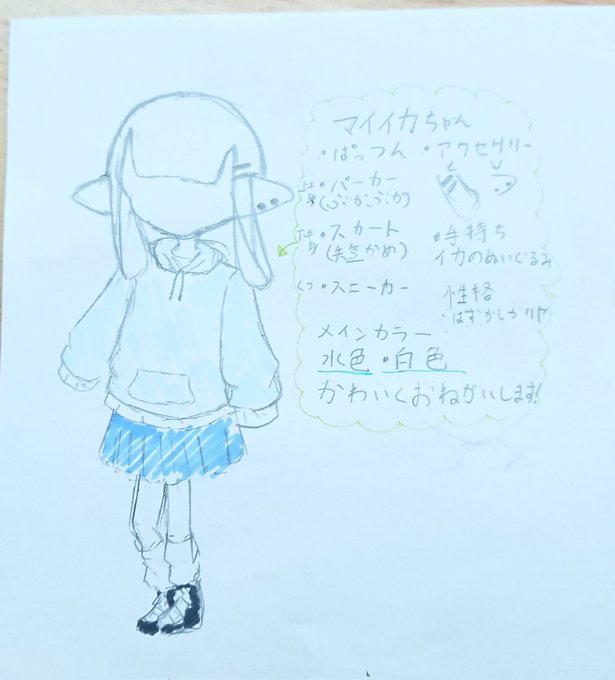 マイイカちゃん
・ぱっつん
・アクセサリー
上半身・パーカー
(ぶかぶか)
下半身・スカート
(短かめ)
・手持ち
イカのぬいぐるみ
くつ・スニーカー
性格
・はずかしがりや
メインカラー
水色・白色
かわいくおねがいします!